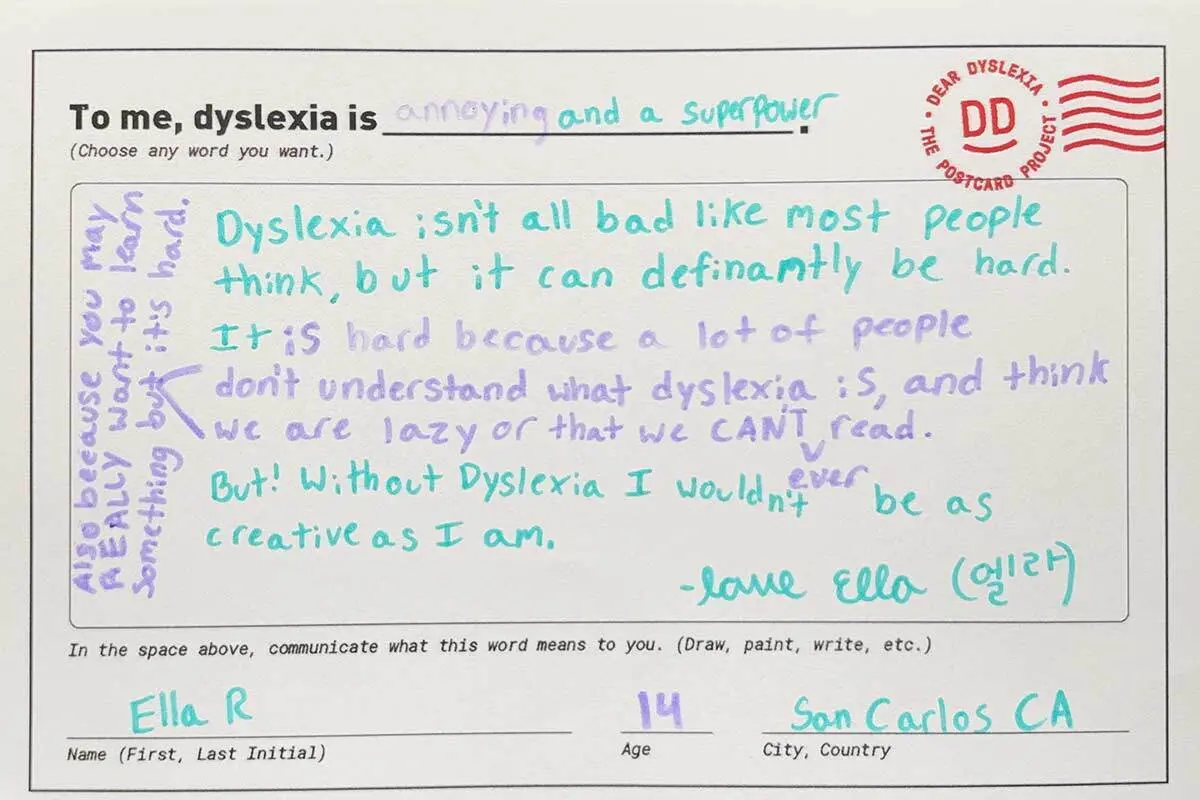 To me, dyslexia is annoying and a superpower.
(Choose any word you want.)
• DEAR DYSLEXIA • THE POSTCARD PROJECT
DD
Dyslexia isn't all bad like most people
think, but it can definantly be hard.
It is hard because a lot of people
don't understand what dyslexia is, and think
we are lazy or that we CAN'T read.
Also because you may
REALLY want to learn
something but it's hard.
But! Without Dyslexia I wouldn't ever be as
creative as I am.
-love Ella (엘라)
In the space above, communicate what this word means to you. (Draw, paint, write, etc.)
Ella R
Name (First, Last Initial)
14
Age
San Carlos CA
City, Country